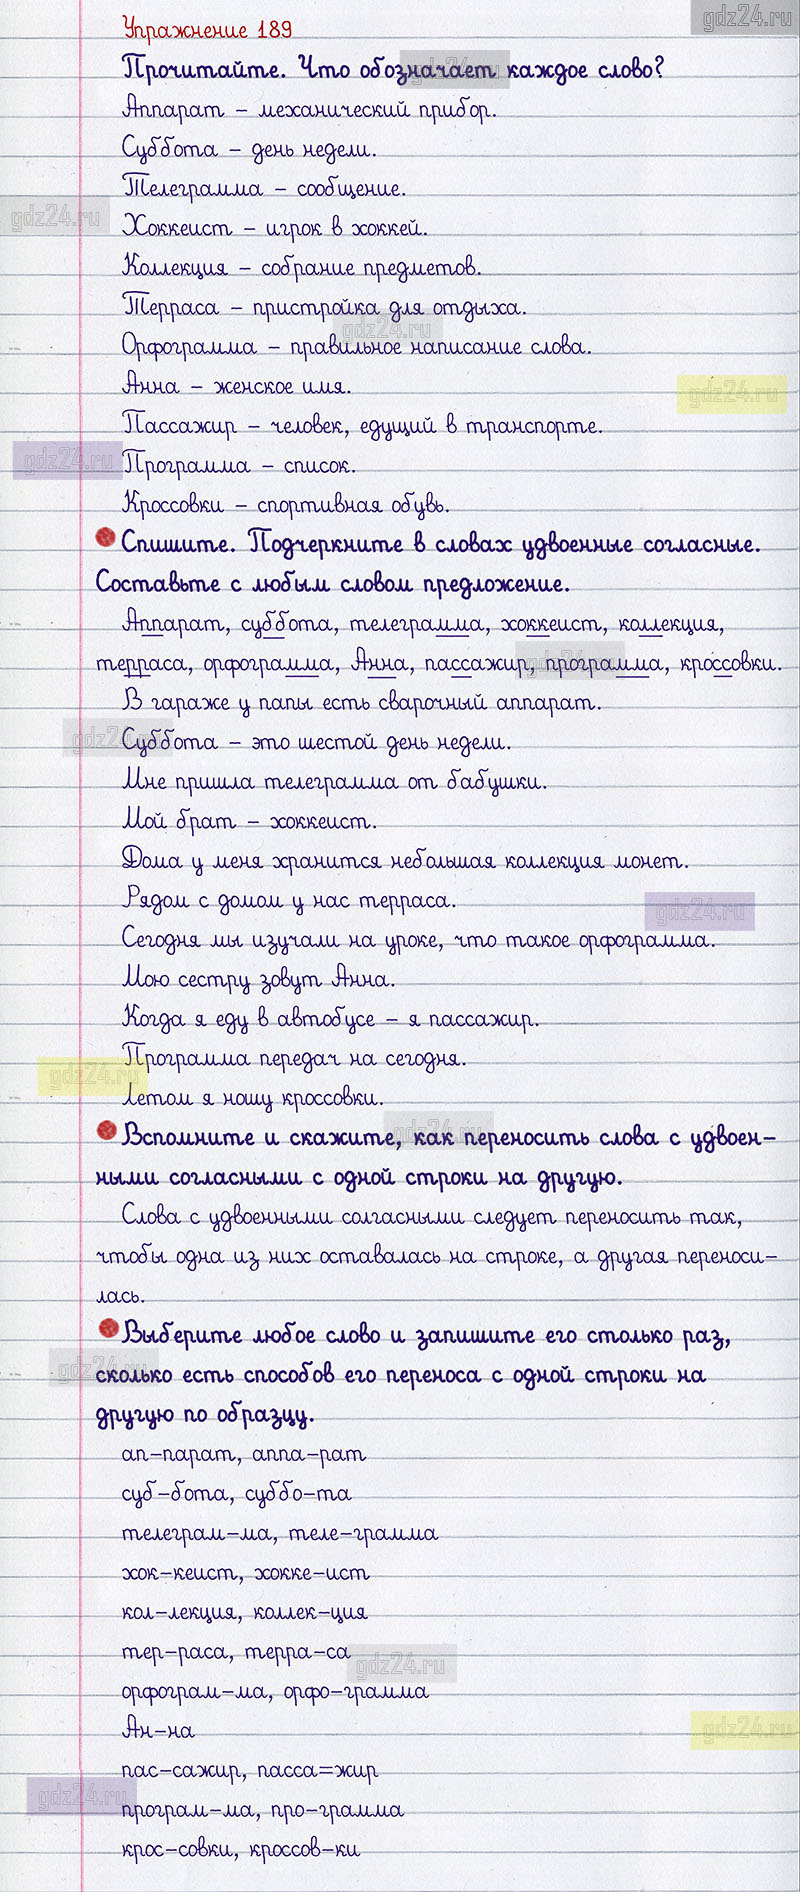 gdz24.ru
Упражнение 189
Прочитайте. Что обозначает каждое слово?
gdz24.ru
Аппарат – механический прибор.
Суббота – день недели.
Телеграмма – сообщение.
gdz24.ru
Хоккеист – игрок в хоккей.
Коллекция – собрание предметов.
Терраса – пристройка для отдыха.
gdz24.ru
Орфограмма – правильное написание слова.
Анна – женское имя.
gdz24.ru
Пассажир – человек, едущий в транспорте.
gdz24.ru
Программа – список.
Кроссовки – спортивная обувь.
Спишите. Подчеркните в словах удвоенные согласные.
Составьте с любым словом предложение.
Аппарат, суббота, телеграмма, хоккеист, коллекция,
терраса, орфограмма, Анна, пассажир, программа, кроссовки.
gdz24.ru
В гараже у папы есть сварочный аппарат.
gdz24.ru
Суббота – это шестой день недели.
Мне пришла телеграмма от бабушки.
Мой брат – хоккеист.
Дома у меня хранится небольшая коллекция монет.
Рядом с домом у нас терраса.
gdz24.ru
Сегодня мы изучали на уроке, что такое орфограмма.
Мою сестру зовут Анна.
Когда я еду в автобусе – я пассажир.
Программа передач на сегодня.
gdz24.ru
Летом я ношу кроссовки.
gdz24.ru
Вспомните и скажите, как переносить слова с удвоен-
ными согласными с одной строки на другую.
Слова с удвоенными солгасными следует переносить так,
чтобы одна из них оставалась на строке, а другая переноси-
лась.
Выберите любое слово и запишите его столько раз,
gdz24.ru
сколько есть способов его переноса с одной строки на
другую по образцу.
ап-парат, аппа-рат
суб-бота, суббо-та
телеграм-ма, теле-грамма
хок-кеист, хокке-ист
кол-лекция, коллек-ция
тер-раса, терра-са
gdz24.ru
орфограм-ма, орфо-грамма
Ан-на
gdz24.ru
пас-сажир, пасса=жир
gdz24.ru
програм-ма, про-грамма
крос-совки, кроссов-ки